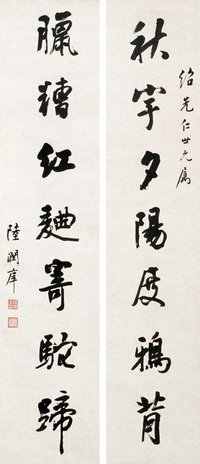 紹先仁世兄屬
秋宇夕陽度鴉背
臘糟紅麴寄駝蹄
陸潤庠